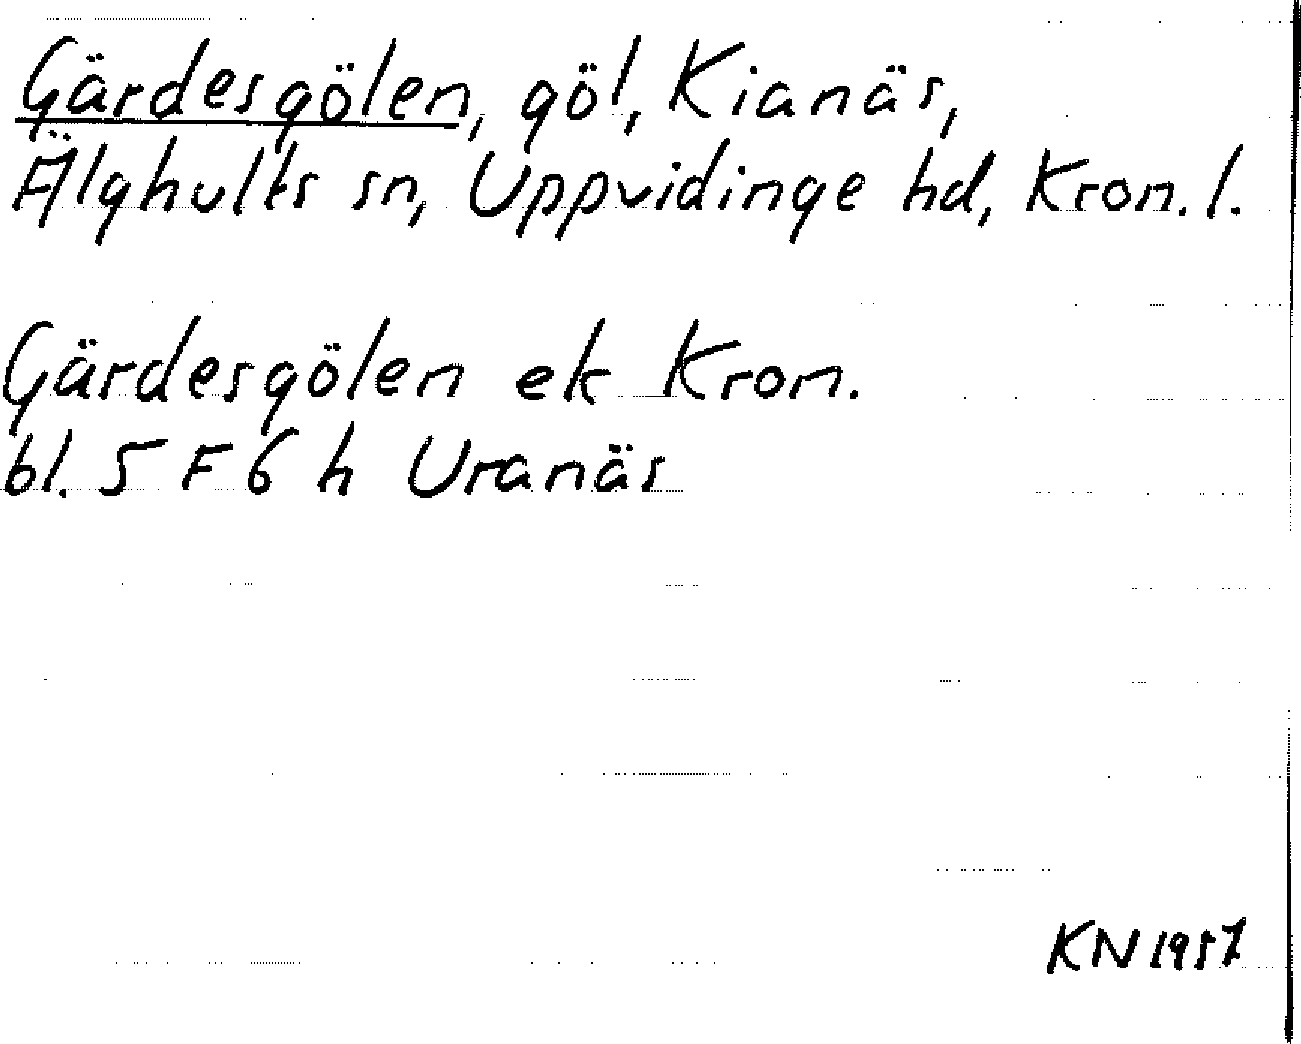 Gärdesgölen, göl, Kianäs,
Älghults sn, Uppvidinge hd, Kron. l.
Gärdesgölen ek Kron.
bl. 5 F 6 h Uranäs
KN 1957